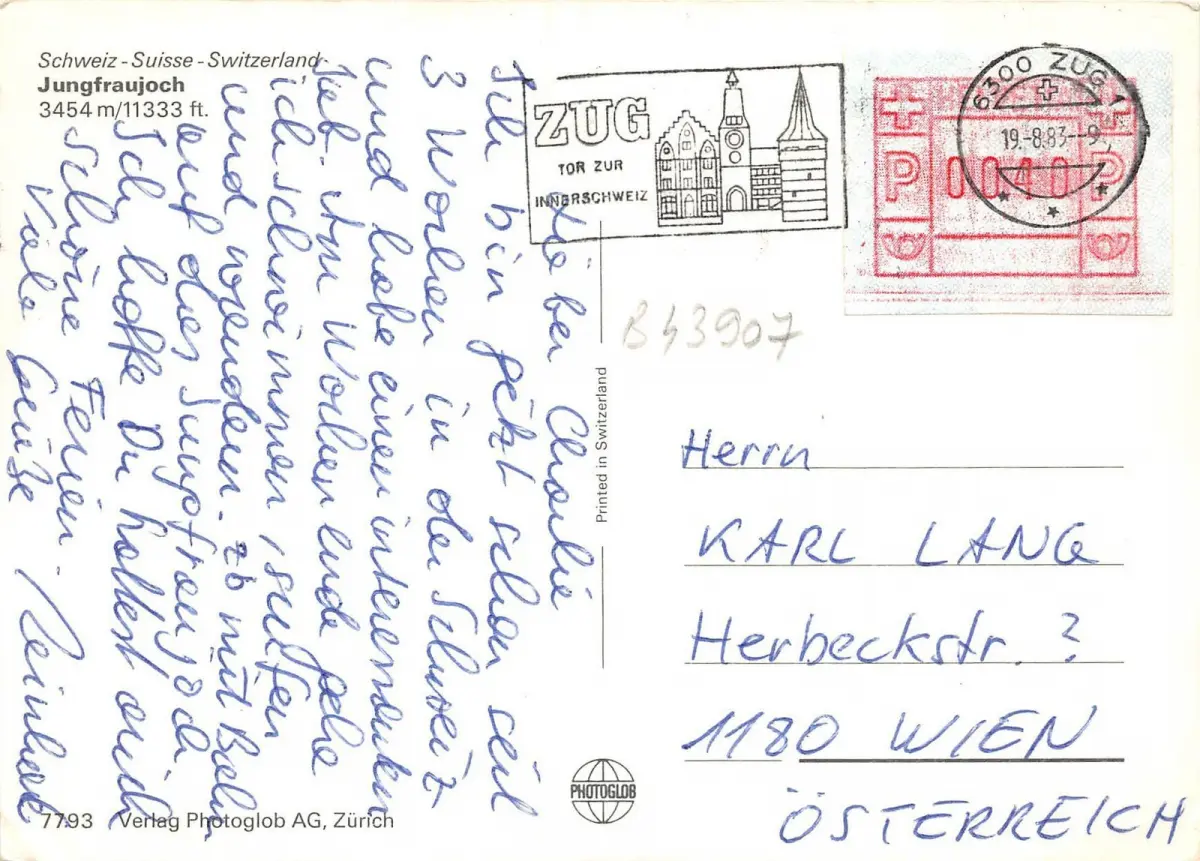 Schweiz - Suisse - Switzerland
Jungfraujoch
3454 m/11333 ft.
ZUG
TOR ZUR
INNERSCHWEIZ
6300 ZUG 1
19.-8.83--9
P 0040 P
B43907
Charlie
Ich bin jetzt schon seit
3 Wochen in der Schweiz
und habe einen interessanten
Job. Am Wochenende gehe
ich schwimmen, surfen
und wandern. zb mit Bahn
auf das Jungfraujoch
Ich hoffe Du hattest auch
schöne Ferien.
Viele Grüße
Printed in Switzerland
Herrn
KARL LANG
Herbeckstr. ?
1180 WIEN
ÖSTERREICH
PHOTOGLOB
7793 Verlag Photoglob AG, Zürich